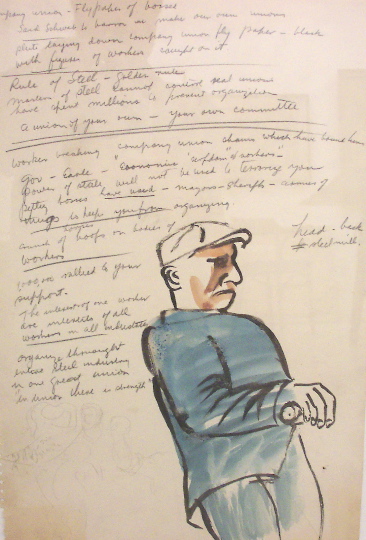 company union - Fly paper of bosses
Said Schwab to barrow we make our own unions
plate saying down company union fly paper - black
with figures of workers caught on it
Rule of Steel - Golden rule
masters of steel cannot control real unions
have spent millions to prevent organization
a union of your own - your own committee
worker breaking company union chains which have bound him
Gov - Earle - "Economic of workers"
power of state will not be used to terrorize you
petty bosses have used - mayors - sheriffs - armies of
thugs to keep you from organizing.
of hoofs on bodies of
workers
rallied to your
support.
The interest of one worker
are interests of all
workers in all industries
organize throughout
entire steel industry
in one great union
"in union there is strength"
head - back
steel mill.